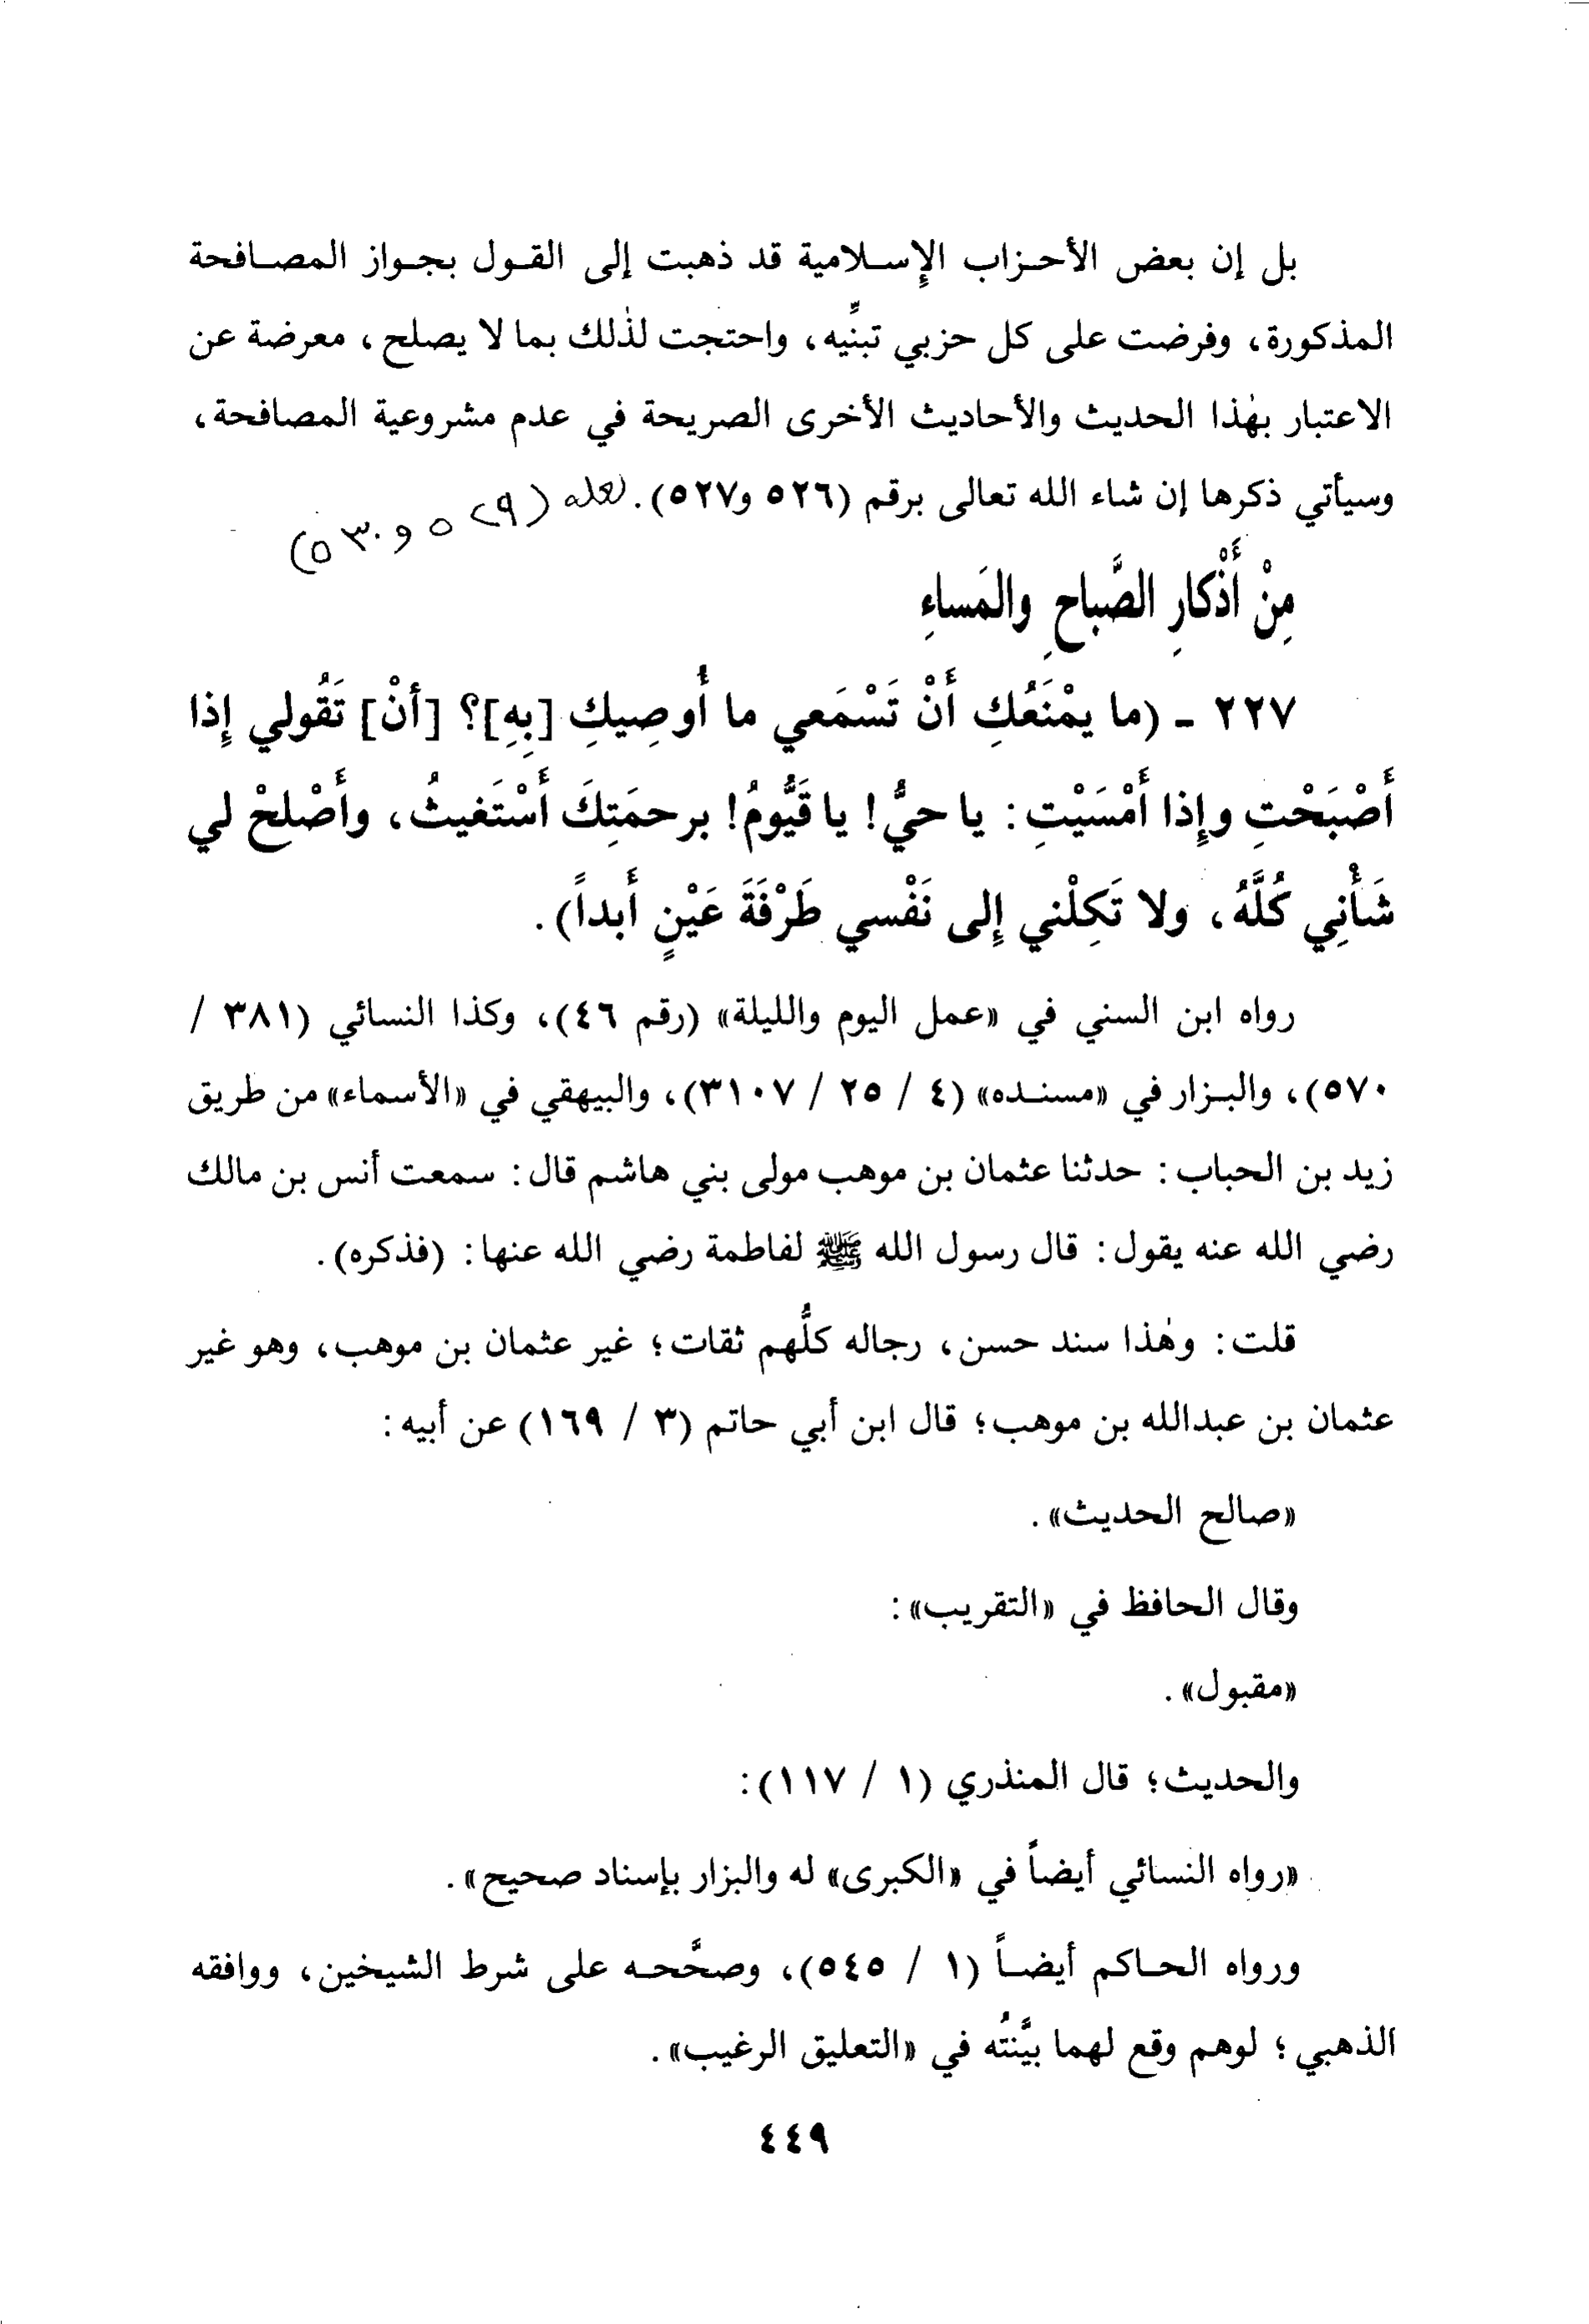 بل إن بعض الأحزاب الإسلامية قد ذهبت إلى القول بجواز المصافحة
المذكورة، وفرضت على كل حزبي تبنِّيه، واحتجت لذلك بما لا يصلح، معرضة عن
الاعتبار بهذا الحديث والأحاديث الأخرى الصريحة في عدم مشروعية المصافحة،
وسيأتي ذكرها إن شاء الله تعالى برقم (٥٢٦ و٥٢٧). لعله (٥٢٩ و ٥٣٠)
مِنْ أَذْكارِ الصَّباحِ والمَساءِ
٢٢٧ - (ما يمْنَعُكِ أَنْ تَسْمَعي ما أُوصِيكِ [بِهِ]؟ [أنْ] تَقُولي إِذا
أَصْبَحْتِ وإِذا أَمْسَيْتِ: يا حيُّ! يا قَيُّومُ! برحمَتِكَ أَسْتَغيثُ، وأَصْلحْ لي
شَأْنِي كُلَّهُ، ولا تَكِلْني إِلى نَفْسي طَرْفَةَ عَيْنٍ أَبداً).
رواه ابن السني في «عمل اليوم والليلة» (رقم ٤٦)، وكذا النسائي (٣٨١ /
٥٧٠)، والبزار في «مسنده» (٤ / ٢٥ / ٣١٠٧)، والبيهقي في «الأسماء» من طريق
زيد بن الحباب: حدثنا عثمان بن موهب مولى بني هاشم قال: سمعت أنس بن مالك
رضي الله عنه يقول: قال رسول الله ﷺ لفاطمة رضي الله عنها: (فذكره).
قلت: وهذا سند حسن، رجاله كلُّهم ثقات؛ غير عثمان بن موهب، وهو غير
عثمان بن عبدالله بن موهب؛ قال ابن أبي حاتم (٣ / ١٦٩) عن أبيه:
«صالح الحديث».
وقال الحافظ في «التقريب»:
«مقبول».
والحديث؛ قال المنذري (١ / ١١٧):
«رواه النسائي أيضاً في «الكبرى» له والبزار بإسناد صحيح».
ورواه الحاكم أيضاً (١ / ٥٤٥)، وصحَّحه على شرط الشيخين، ووافقه
الذهبي؛ لوهم وقع لهما بيَّنتُه في «التعليق الرغيب».
٤٤٩